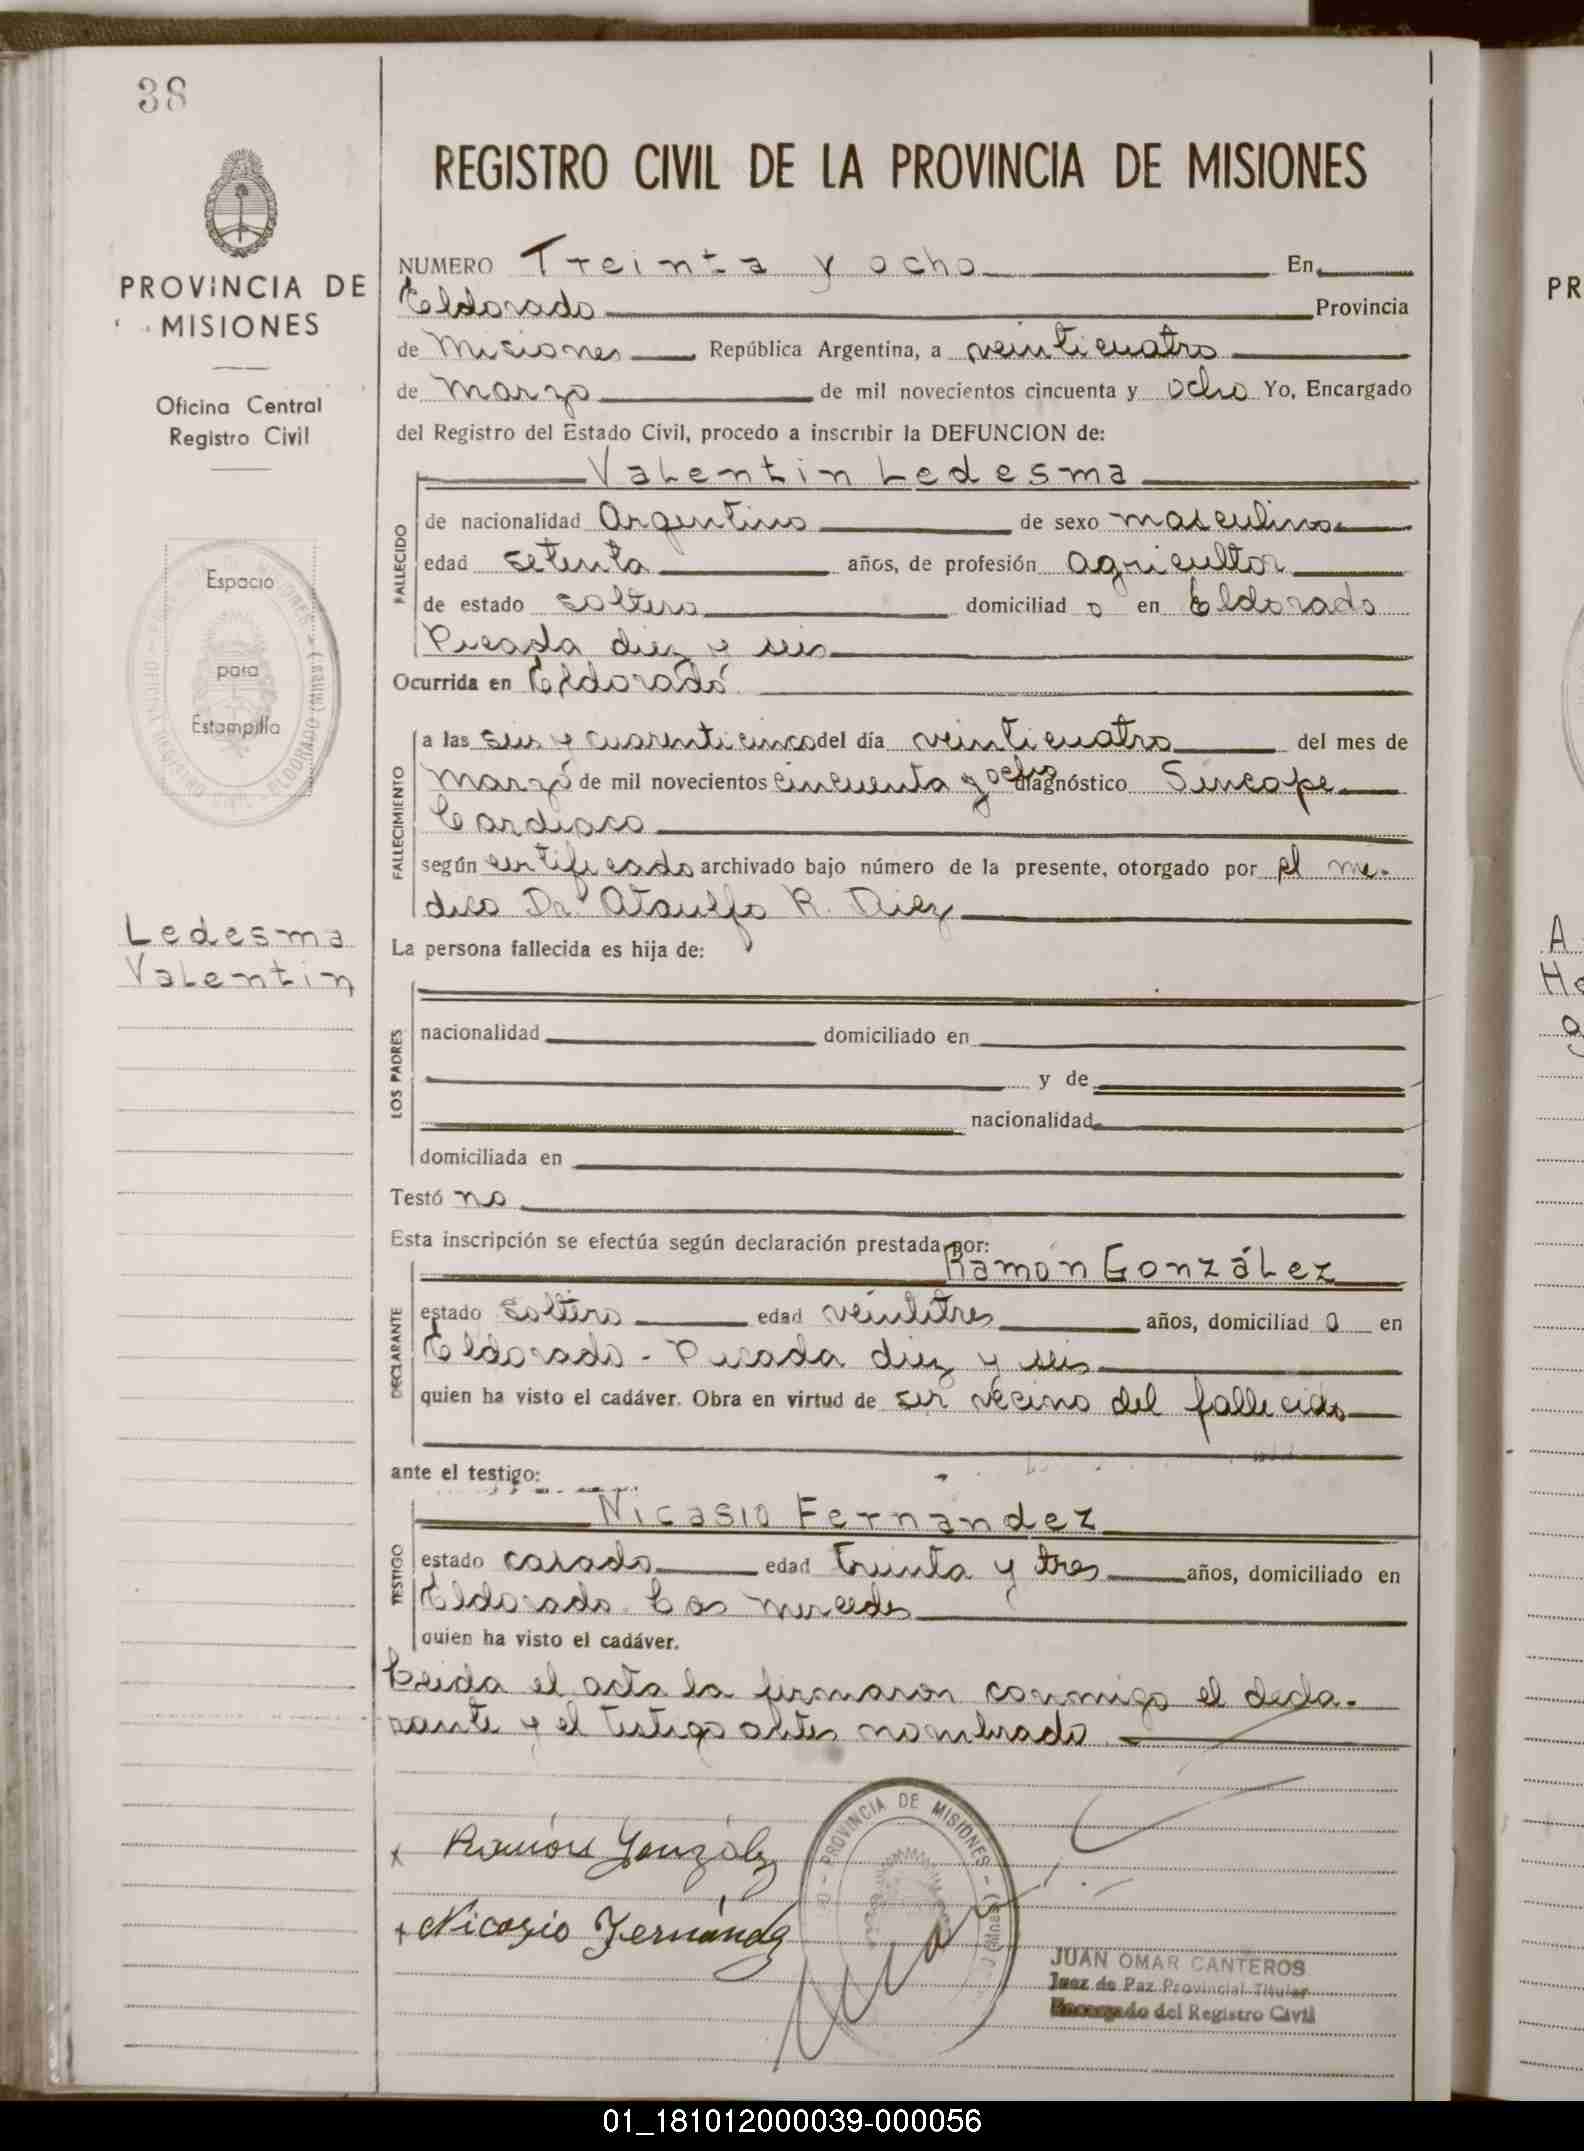 38
PROVINCIA DE
MISIONES
Oficina Central
Registro Civil
Espacio
para
Estampilla
Ledesma
Valentin
REGISTRO CIVIL DE LA PROVINCIA DE MISIONES
NUMERO Treinta y ocho En
Eldorado Provincia
de Misiones República Argentina, a veinticuatro
de marzo de mil novecientos cincuenta y ocho Yo, Encargado
del Registro del Estado Civil, procedo a inscribir la DEFUNCION de:
Valentin Ledesma
FALLECIDO
de nacionalidad Argentino de sexo masculino
edad setenta años, de profesión agricultor
de estado soltero domiciliad o en Eldorado
Picada diez y seis
Ocurrida en Eldorado
FALLECIMIENTO
a las seis y cuarenticinco del día veinticuatro del mes de
marzo de mil novecientos cincuenta y ocho diagnóstico Sincope
Cardiaco
según certificado archivado bajo número de la presente, otorgado por el me-
dico Dr. Ataulfo R. Diez
La persona fallecida es hija de:
LOS PADRES
nacionalidad domiciliado en
y de
nacionalidad
domiciliada en
Testó no
Esta inscripción se efectúa según declaración prestada por:
Ramón González
DECLARANTE
estado soltero edad veintitres años, domiciliad o en
Eldorado - Picada diez y seis
quien ha visto el cadáver. Obra en virtud de ser vecino del fallecido
ante el testigo:
Nicasio Fernandez
TESTIGO
estado casado edad treinta y tres años, domiciliado en
Eldorado Las mercedes
quien ha visto el cadáver.
Leida el acta la firmaron conmigo el decla-
rante y el testigo antes nombrado.
Ramón González
Nicazio Fernández
PROVINCIA DE MISIONES
JUAN OMAR CANTEROS
Juez de Paz Provincial Titular
Encargado del Registro Civil
PR
A
He
g
01_181012000039-000056